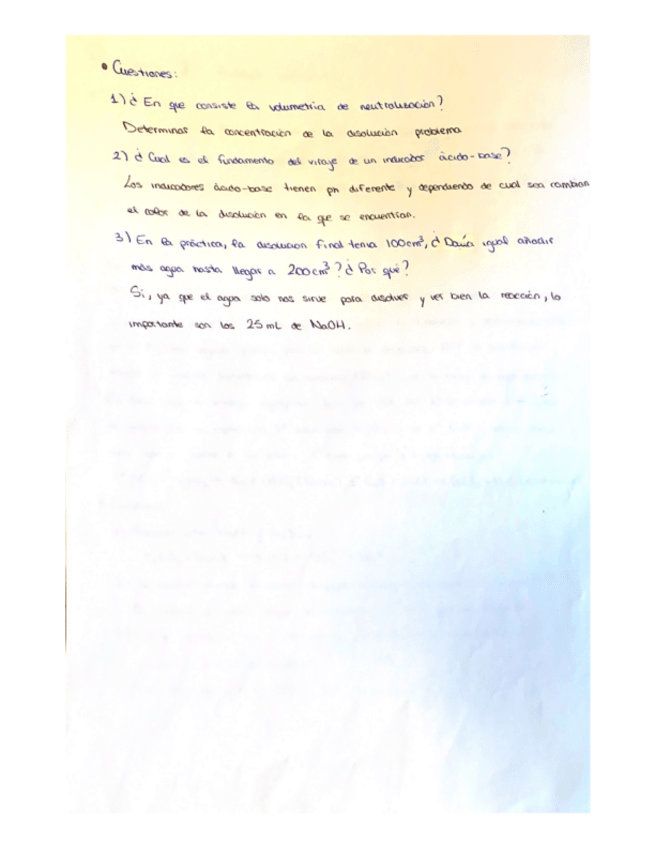 • Cuestiones:
1) ¿ En que consiste la volumetría de neutralización?
Determinar la concentración de la disolución problema
2) ¿ Cual es el fundamento del viraje de un indicador ácido-base?
Los indicadores ácido-base tienen pH diferente y dependiendo de cual sea cambian
el color de la disolución en la que se encuentran.
3) En la práctica, la disolución final tenia 100cm³, ¿ Daría igual añadir
más agua hasta llegar a 200cm³? ¿ Por qué?
Si, ya que el agua solo nos sirve para disolver y ver bien la reacción, lo
importante son los 25 mL de NaOH.